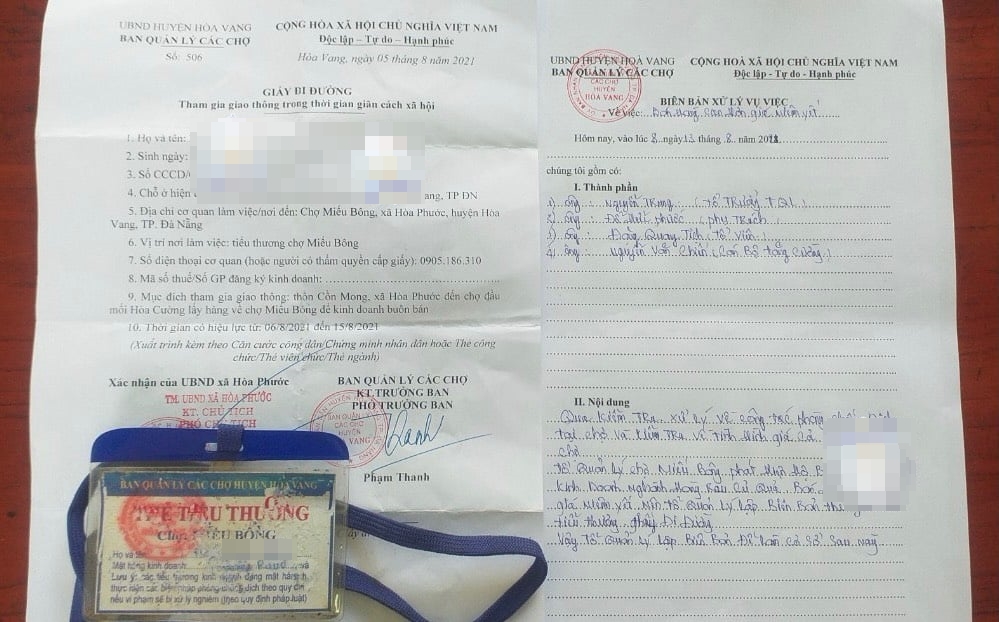 UBND HUYỆN HÒA VANG
BAN QUẢN LÝ CÁC CHỢ
Số: 506
CỘNG HÒA XÃ HỘI CHỦ NGHĨA VIỆT NAM
Độc lập – Tự do – Hạnh phúc
Hòa Vang, ngày 05 tháng 8 năm 2021
GIẤY ĐI ĐƯỜNG
Tham gia giao thông trong thời gian giãn cách xã hội
1. Họ và tên:
2. Sinh ngày:
3. Số CCCD/
4. Chỗ ở hiện
ang, TP ĐN
5. Địa chỉ cơ quan làm việc/nơi đến: Chợ Miếu Bông, xã Hòa Phước, huyện Hòa
Vang, TP. Đà Nẵng
6. Vị trí nơi làm việc: tiểu thương chợ Miếu Bông
7. Số điện thoại cơ quan (hoặc người có thẩm quyền cấp giấy): 0905.186.310
8. Mã số thuế/Số GP đăng ký kinh doanh:
9. Mục đích tham gia giao thông: thôn Cồn Mong, xã Hòa Phước đến chợ đầu
mối Hòa Cường lấy hàng về chợ Miếu Bông để kinh doanh buôn bán
10. Thời gian có hiệu lực từ: 06/8/2021 đến 15/8/2021
(Xuất trình kèm theo Căn cước công dân/Chứng minh nhân dân hoặc Thẻ công
chức/Thẻ viên chức/Thẻ ngành)
Xác nhận của UBND xã Hòa Phước
TM. UBND XÃ HÒA PHƯỚC
KT. CHỦ TỊCH
PHÓ CHỦ TỊCH
BAN QUẢN LÝ CÁC CHỢ
KT.TRƯỞNG BAN
PHÓ TRƯỞNG BAN
Phạm Thanh
BAN QUẢN LÝ CÁC CHỢ HUYỆN HÒA VANG
THẺ TIỂU THƯƠNG
Chợ: MIẾU BÔNG
Họ và tên:
Mặt hàng kinh doanh:
Lưu ý: các tiểu thương kinh doanh đúng mặt hàng
thực hiện các biện pháp phòng chống dịch theo quy định
nếu vi phạm sẽ bị xử lý nghiêm (theo quy định pháp luật)
UBND HUYỆN HOÀ VANG
BAN QUẢN LÝ CÁC CHỢ
CỘNG HOÀ XÃ HỘI CHỦ NGHĨA VIỆT NAM
Độc lập – Tự do – Hạnh phúc
BIÊN BẢN XỬ LÝ VỤ VIỆC
Về việc: Bán hàng cao hơn giá niêm yết
Hôm nay, vào lúc 8 ngày 13 tháng 8 năm 2021
chúng tôi gồm có:
I. Thành phần
1) ông: Nguyễn Trung (Tổ Trưởng TQL)
2) ông: Phước (phụ Trách)
3) ông: Đặng Quang Tích (Tổ viên)
4) ông: Nguyễn Văn Chiến (Cán Bộ tăng cường)
II. Nội dung
Qua kiểm Tra xử lý về công tác phòng chống Dịch
tại chợ và kiểm Tra về tình hình giá cả
chợ
Tổ Quản Lý chợ Miếu Bông phát hiện hộ B
Kinh Doanh nghành Hàng Rau Củ Quả Bán
giá niêm yết nên tổ Quản Lý Lập Biên Bản thu
tiểu thương, giấy Đi Đường
Vậy Tổ Quản Lý Lập Biên Bản Để làm cơ sở sau này